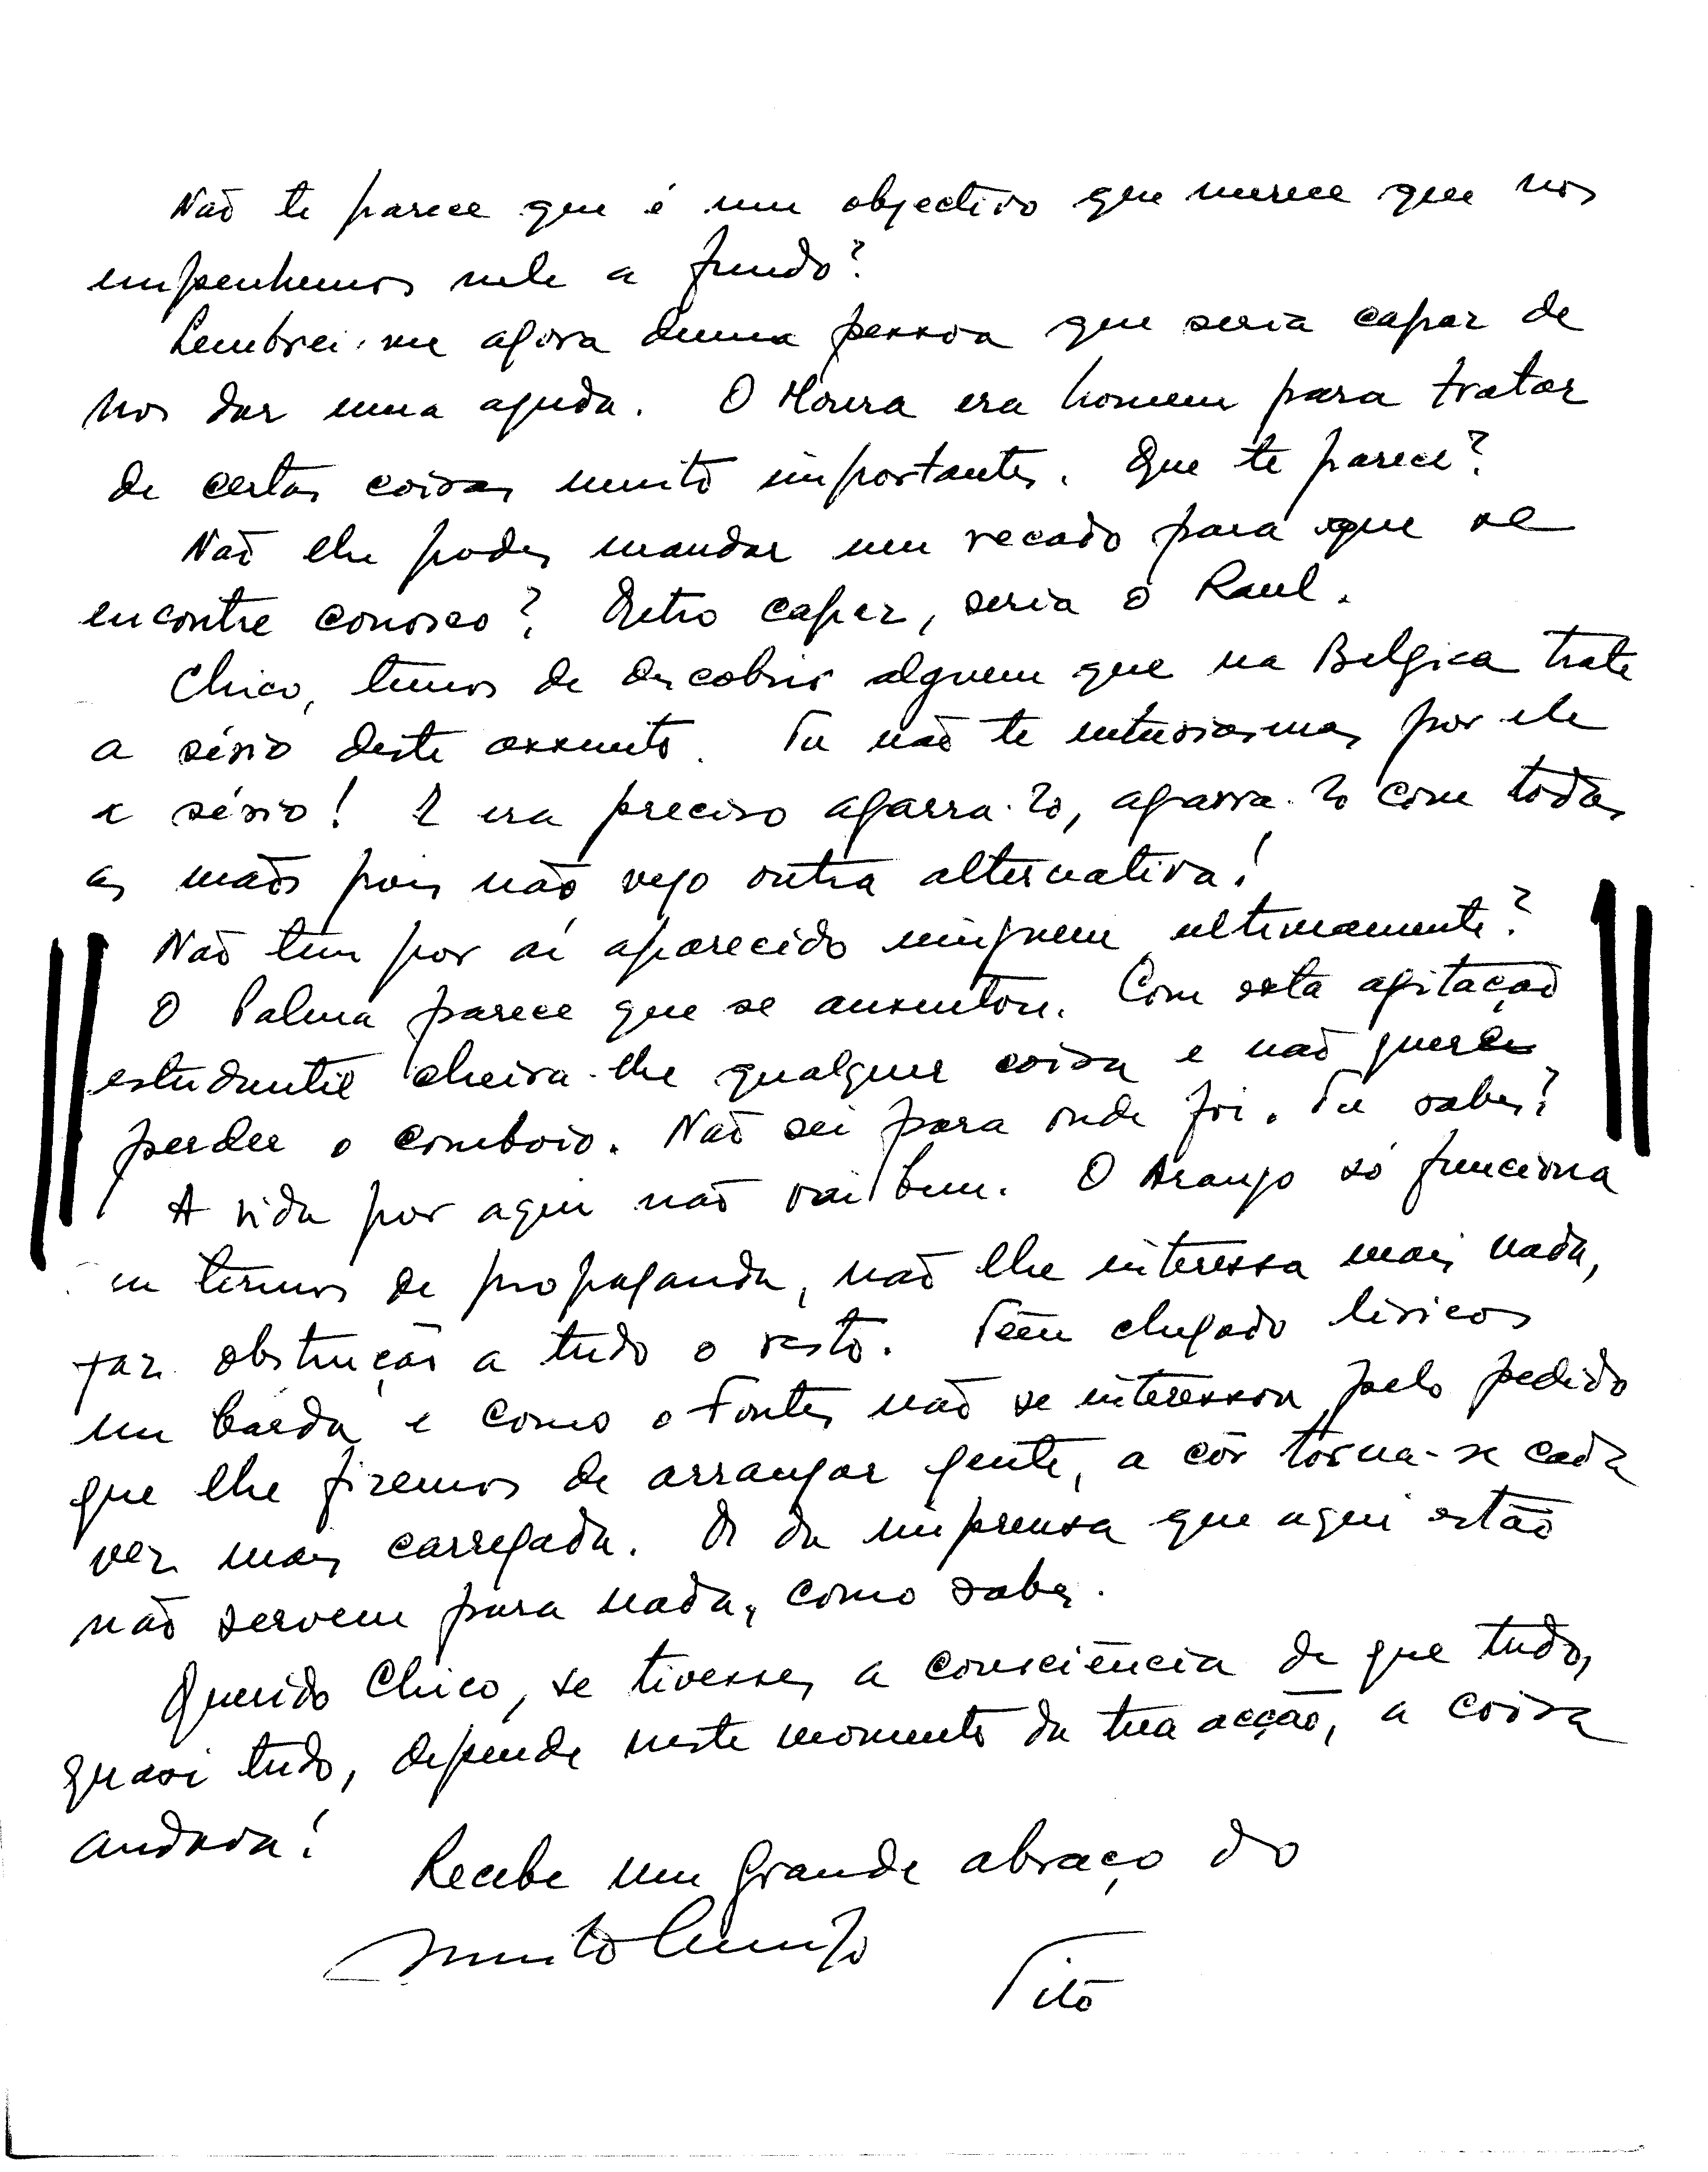 Não te parece que é um objectivo que merece que nos
empenhemos nele a fundo?
Lembrei-me agora duma pessoa que seria capaz de
nos dar uma ajuda. O Moura era homem para tratar
de certas coisas muito importantes. Que te parece?
Não lhe podes mandar um recado para que se
encontre conosco? Outro capaz, seria o Raul.
Chico, temos de descobrir alguem que na Belgica trate
a sério deste assunto. Tu não te entusiasmas por ele
a sério! E era preciso agarra-lo, agarra-lo com todas
as mãos pois não vejo outra alternativa!
Não tem por aí aparecido ninguem ultimamente?
O Palma parece que se ausentou. Com esta agitação
estudantil cheira-lhe qualquer coisa e não quer
perder o comboio. Não sei para onde foi. Tu sabes?
A vida por aqui não vai bem. O Araujo só funciona
em termos de propaganda, não lhe interessa mais nada,
faz obstrução a tudo o resto. Teem chegado liricos
em barda e como o Fontes não se interessou pelo pedido
que lhe fizemos de arranjar gente, a côr torna-se cada
vez mais carregada. Os da imprensa que aqui estão
não servem para nada, como sabes.
Querido Chico, se tivesses a consciência de que tudo,
quasi tudo, depende neste momento da tua acção, a coisa
andava!
Recebe um grande abraço do
muito amigo
Tito